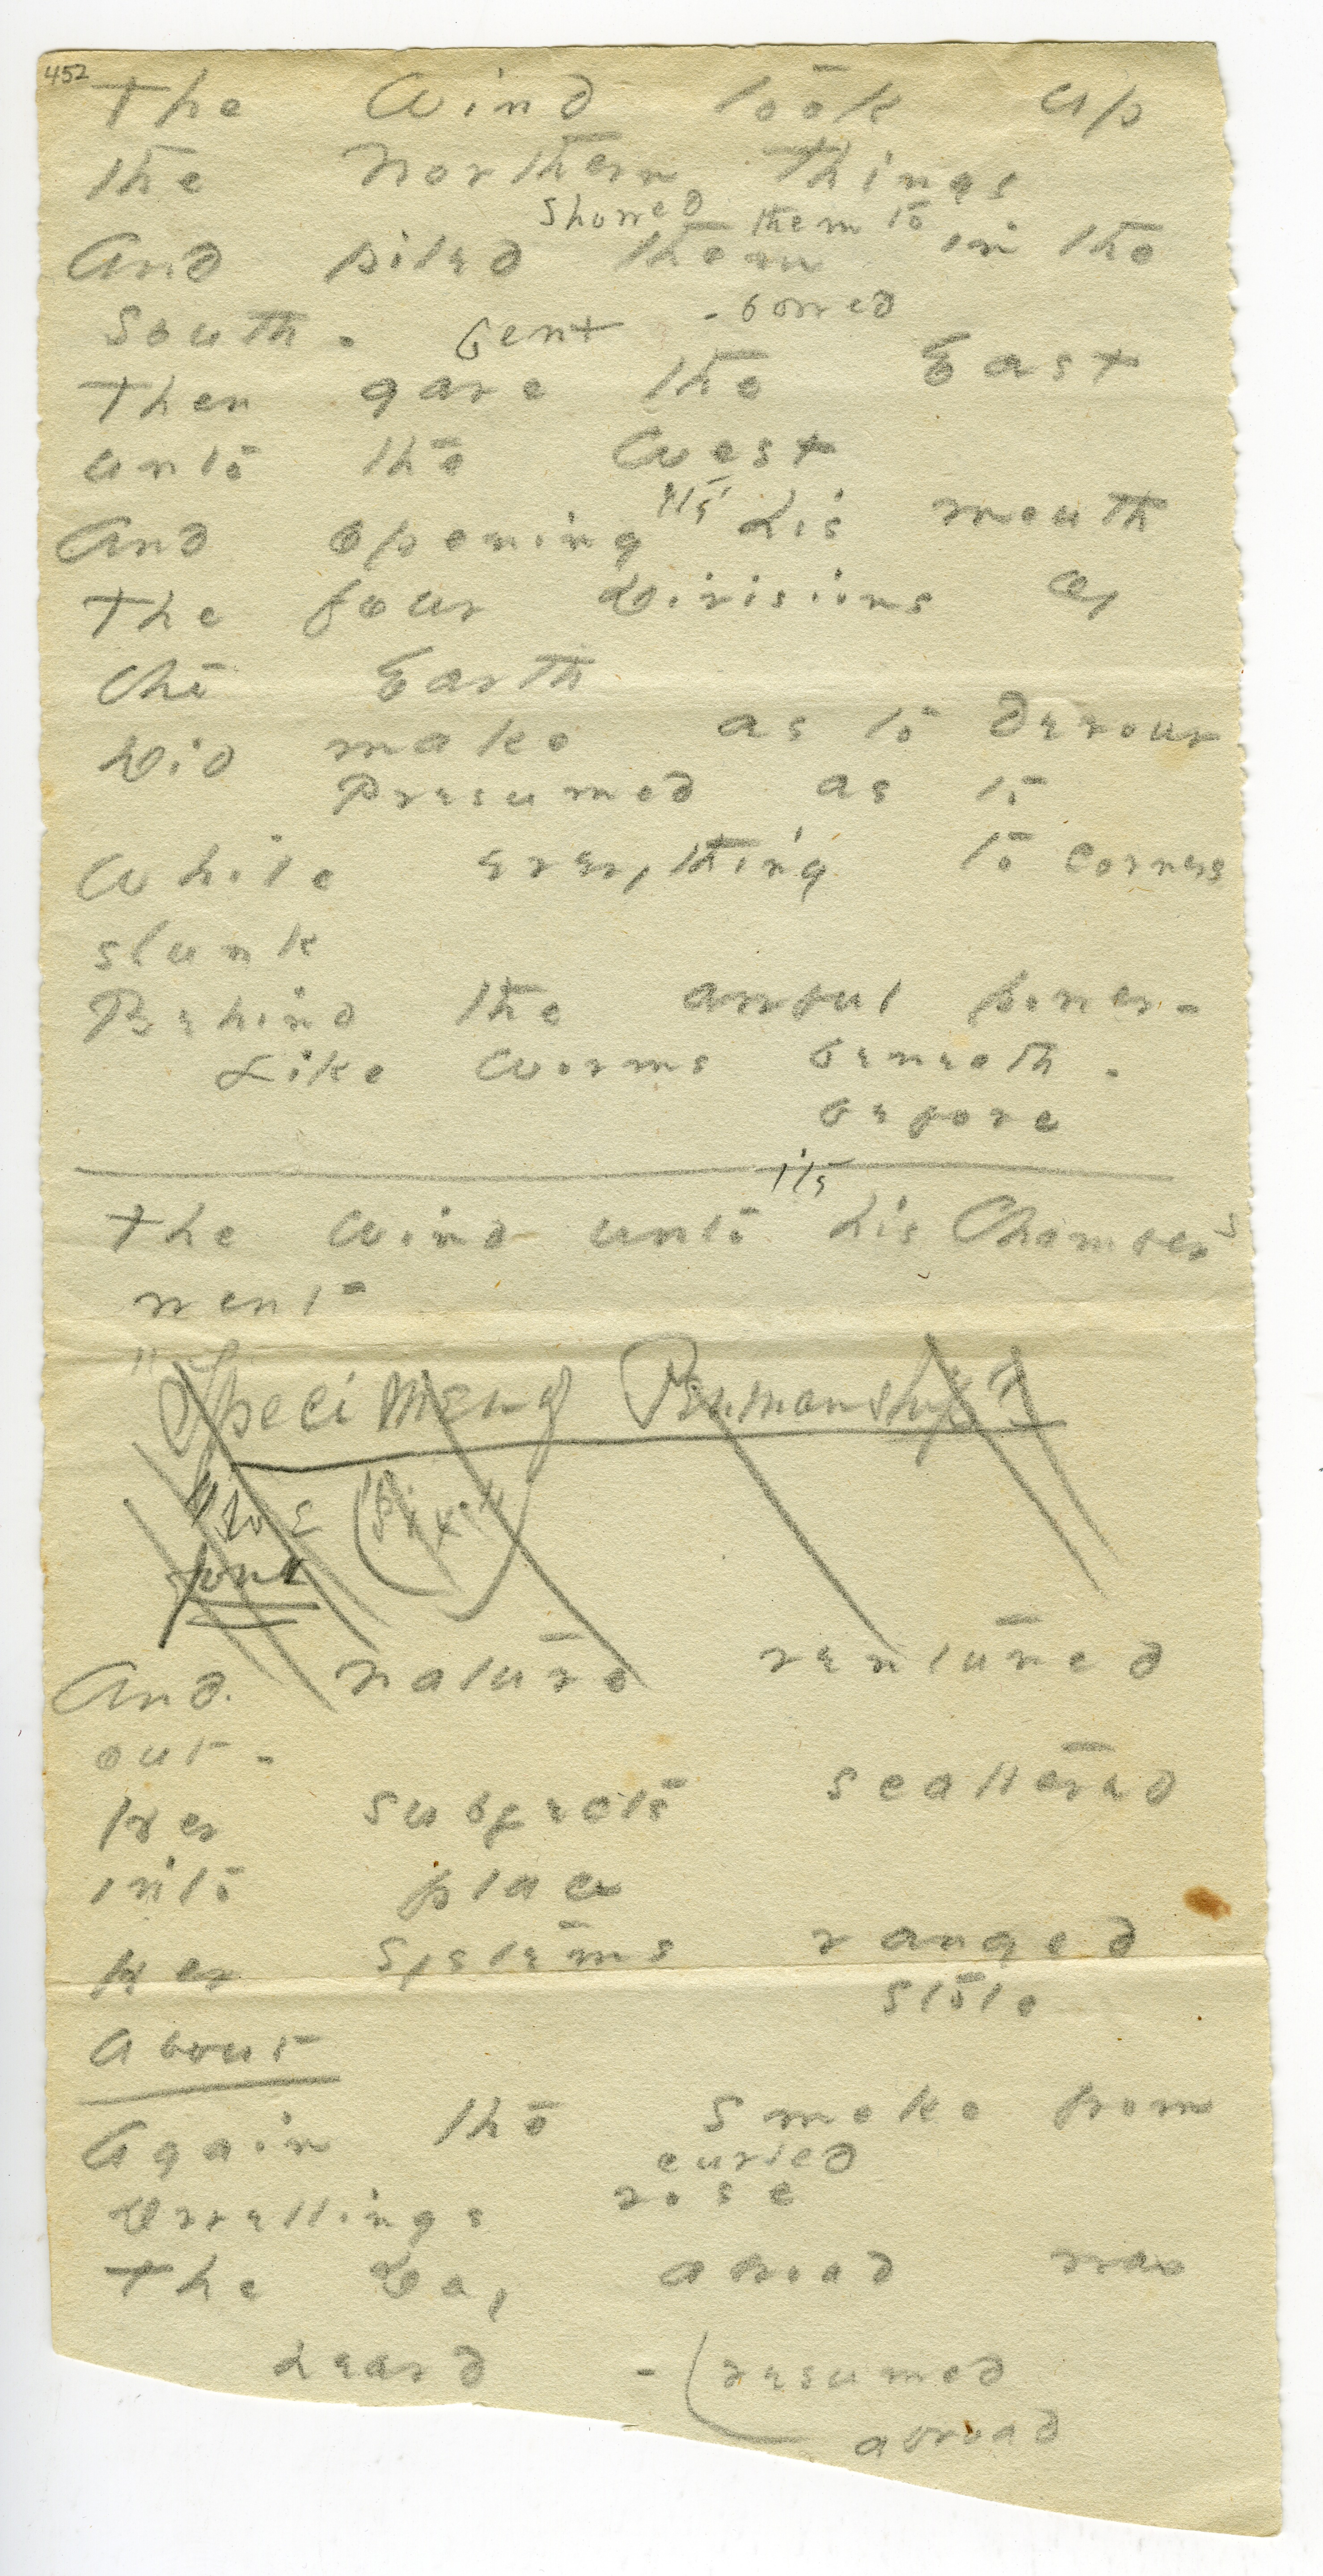 452
The Wind took up
the Northern Things
showed them to
And piled them in the
South -
bent - bowed
Then gave the East
unto the West
And opening it's his mouth
The four Divisions of
the Earth
Did make as to Devour
Presumed as to
While everything to corners
slunk
Behind the awful power -
Like worms beneath -
before
it's
The Wind unto his Chambers
went
"Specimen of Penmanship"
And nature ventured
out -
Her subjects scattered
into place
Her systems ranged
stole
About
Again the smoke from
curled
Dwellings rose
The Day abroad was
heard - (resumed
abroad